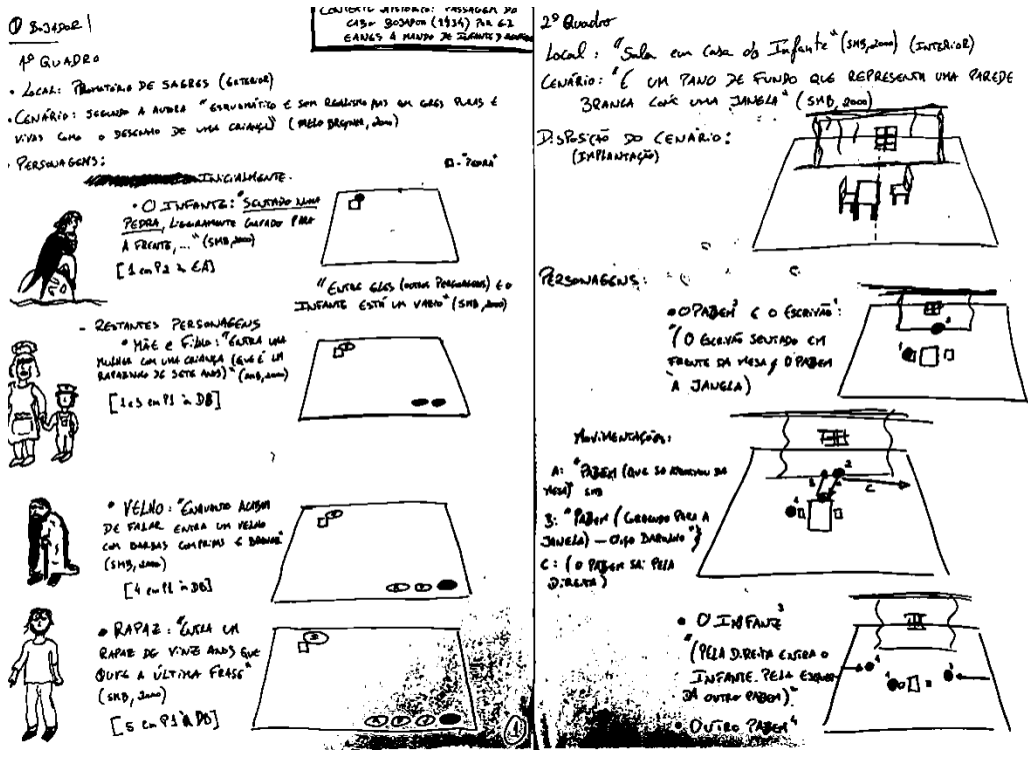 ① BOJADOR
CONTEXTO HISTÓRICO: PASSAGEM DO
CABO BOJADOR (1434) POR GIL
EANES A MANDO DE INFANTE D.
1º QUADRO
• LOCAL: PROMONTÓRIO DE SAGRES (EXTERIOR)
• CENÁRIO: SEGUNDO A AUTORA "ESQUEMÁTICO E SEM REALISMO MAS EM CORES PURAS E
VIVAS COMO O DESENHO DE UMA CRIANÇA" (MELO BREYNER, 2000)
• PERSONAGENS:
□ - "PEDRA"
INICIALMENTE.
• O INFANTE: "SENTADO NUMA
PEDRA, LIGEIRAMENTE CURVADO PARA
A FRENTE, ..." (SMB, 2000)
[1 em P2 à EA]
"ENTRE ELES (OUTROS PERSONAGENS) E O
INFANTE ESTÁ UM VAZIO" (SMB, 2000)
- RESTANTES PERSONAGENS
• MÃE E FILHO: "ENTRA UMA
MULHER COM UMA CRIANÇA (QUE É UM
RAPAZINHO DE SETE ANOS)" (SMB, 2000)
[2 e 3 em P1 à DB]
• VELHO: "ENQUANTO ACABAM
DE FALAR ENTRA UM VELHO
COM BARBAS COMPRIDAS E BRANCAS"
(SMB, 2000)
[4 em P1 à DB]
• RAPAZ: "ENTRA UM
RAPAZ DE VINTE ANOS QUE
OUVE A ÚLTIMA FRASE"
(SMB, 2000)
[5 em P1 à DB]
①
2º Quadro
Local: "Sala em Casa do Infante" (SMB, 2000) (INTERIOR)
CENÁRIO: "É UM PANO DE FUNDO QUE REPRESENTA UMA PAREDE
BRANCA COM UMA JANELA" (SMB, 2000)
DISPOSIÇÃO DO CENÁRIO:
(IMPLANTAÇÃO)
PERSONAGENS:
• O PAJEM² E O ESCRIVÃO¹:
"(O ESCRIVÃO SENTADO EM
FRENTE DA MESA, O PAJEM
À JANELA)
MOVIMENTAÇÕES:
A: "PAJEM (QUE SE APROXIMOU DA
MESA)" SMB
B: "PAJEM (CORRENDO PARA A
JANELA) — OIÇO BARULHO"
C: (O PAJEM SAI PELA
DIREITA)
• O INFANTE³
"(PELA DIREITA ENTRA O
INFANTE. PELA ESQUERDA
OUTRO PAJEM)"
• OUTRO PAJEM⁴